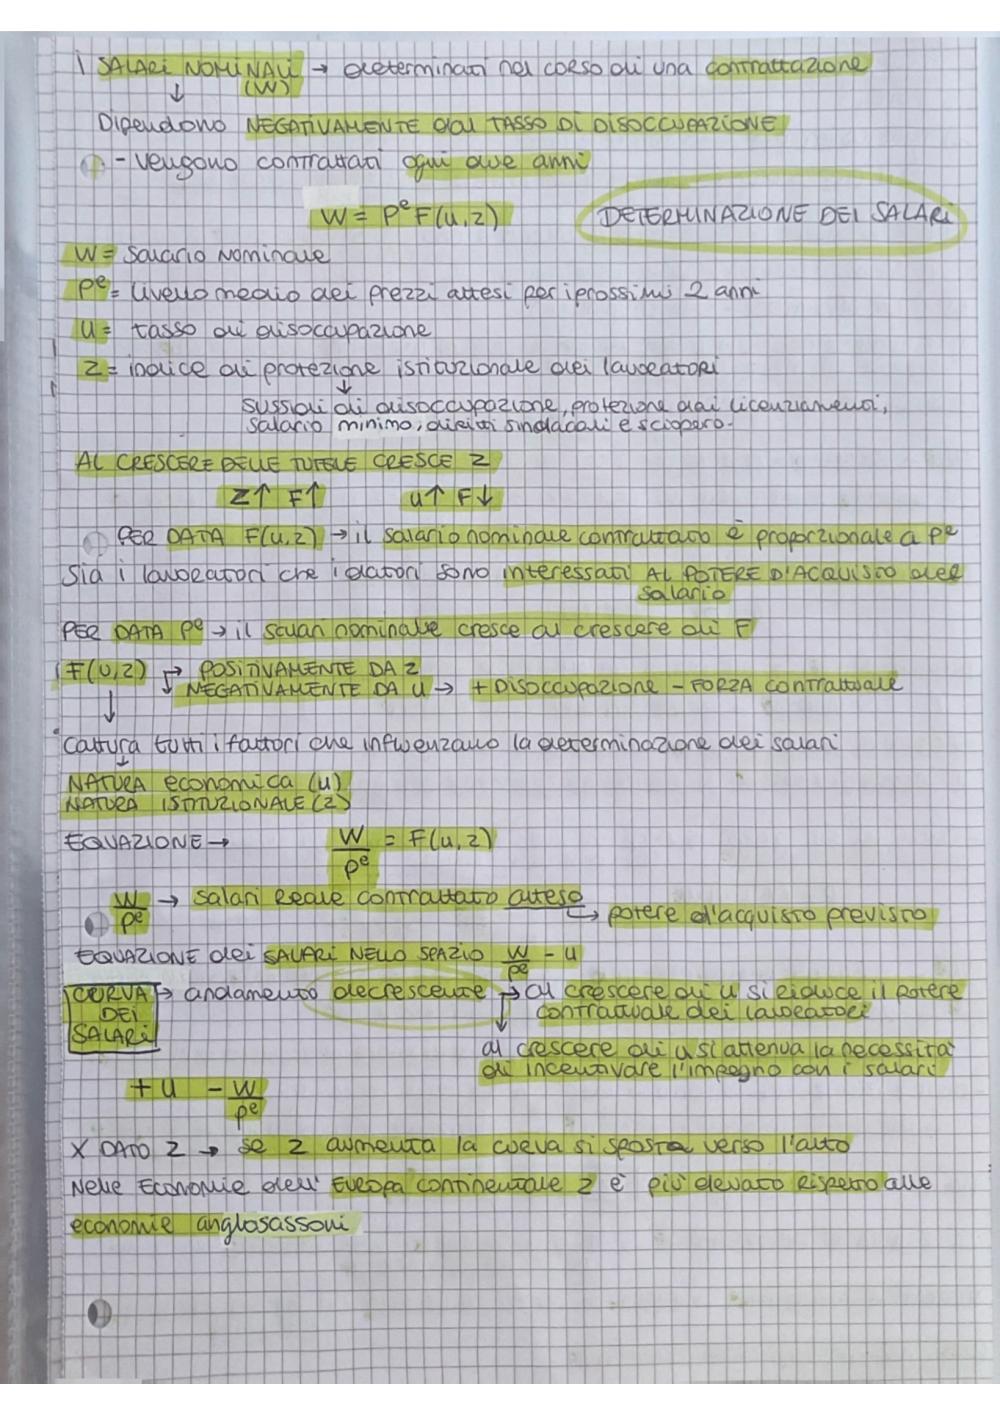 I SALARI NOMINALI → determinati nel corso di una contrattazione
↓ (W)
Dipendono NEGATIVAMENTE dal TASSO DI DISOCCUPAZIONE
- vengono contrattati ogni due anni
W = Pᵉ F(u,z)
DETERMINAZIONE DEI SALARI
W = salario nominale
Pᵉ = livello medio dei prezzi attesi per i prossimi 2 anni
u = tasso di disoccupazione
z = indice di protezione istituzionale dei lavoratori
↓
sussidi di disoccupazione, protezione dai licenziamenti,
salario minimo, diritti sindacali e sciopero.
AL CRESCERE DELLE TUTELE CRESCE Z
Z↑ F↑ u↑ F↓
PER DATA F(u,z) → il salario nominale contrattato è proporzionale a Pᵉ
Sia i lavoratori che i datori sono interessati AL POTERE D'ACQUISTO del
salario
PER DATA Pᵉ → il salari nominale cresce al crescere di F
F(u,z) → POSITIVAMENTE DA Z
↳ NEGATIVAMENTE DA u → + Disoccupazione - FORZA contrattuale
↓
Cattura tutti i fattori che influenzano la determinazione dei salari
↓
NATURA economica (u)
NATURA ISTITUZIONALE (Z)
EQUAZIONE → W/Pᵉ = F(u,z)
W/Pᵉ → salari Reale contrattato atteso
↳ potere d'acquisto previsto
EQUAZIONE dei SALARI NELLO SPAZIO W/Pᵉ - u
CURVA DEI SALARI → andamento decrescente → al crescere di u si riduce il potere
contrattuale dei lavoratori
↓
al crescere di u si attenua la necessità
di incentivare l'impegno con i salari
+ u - W/Pᵉ
X DATO Z → se z aumenta la curva si sposta verso l'alto
Nelle Economie dell' Europa continentale z è più elevato rispetto alle
economie anglosassoni